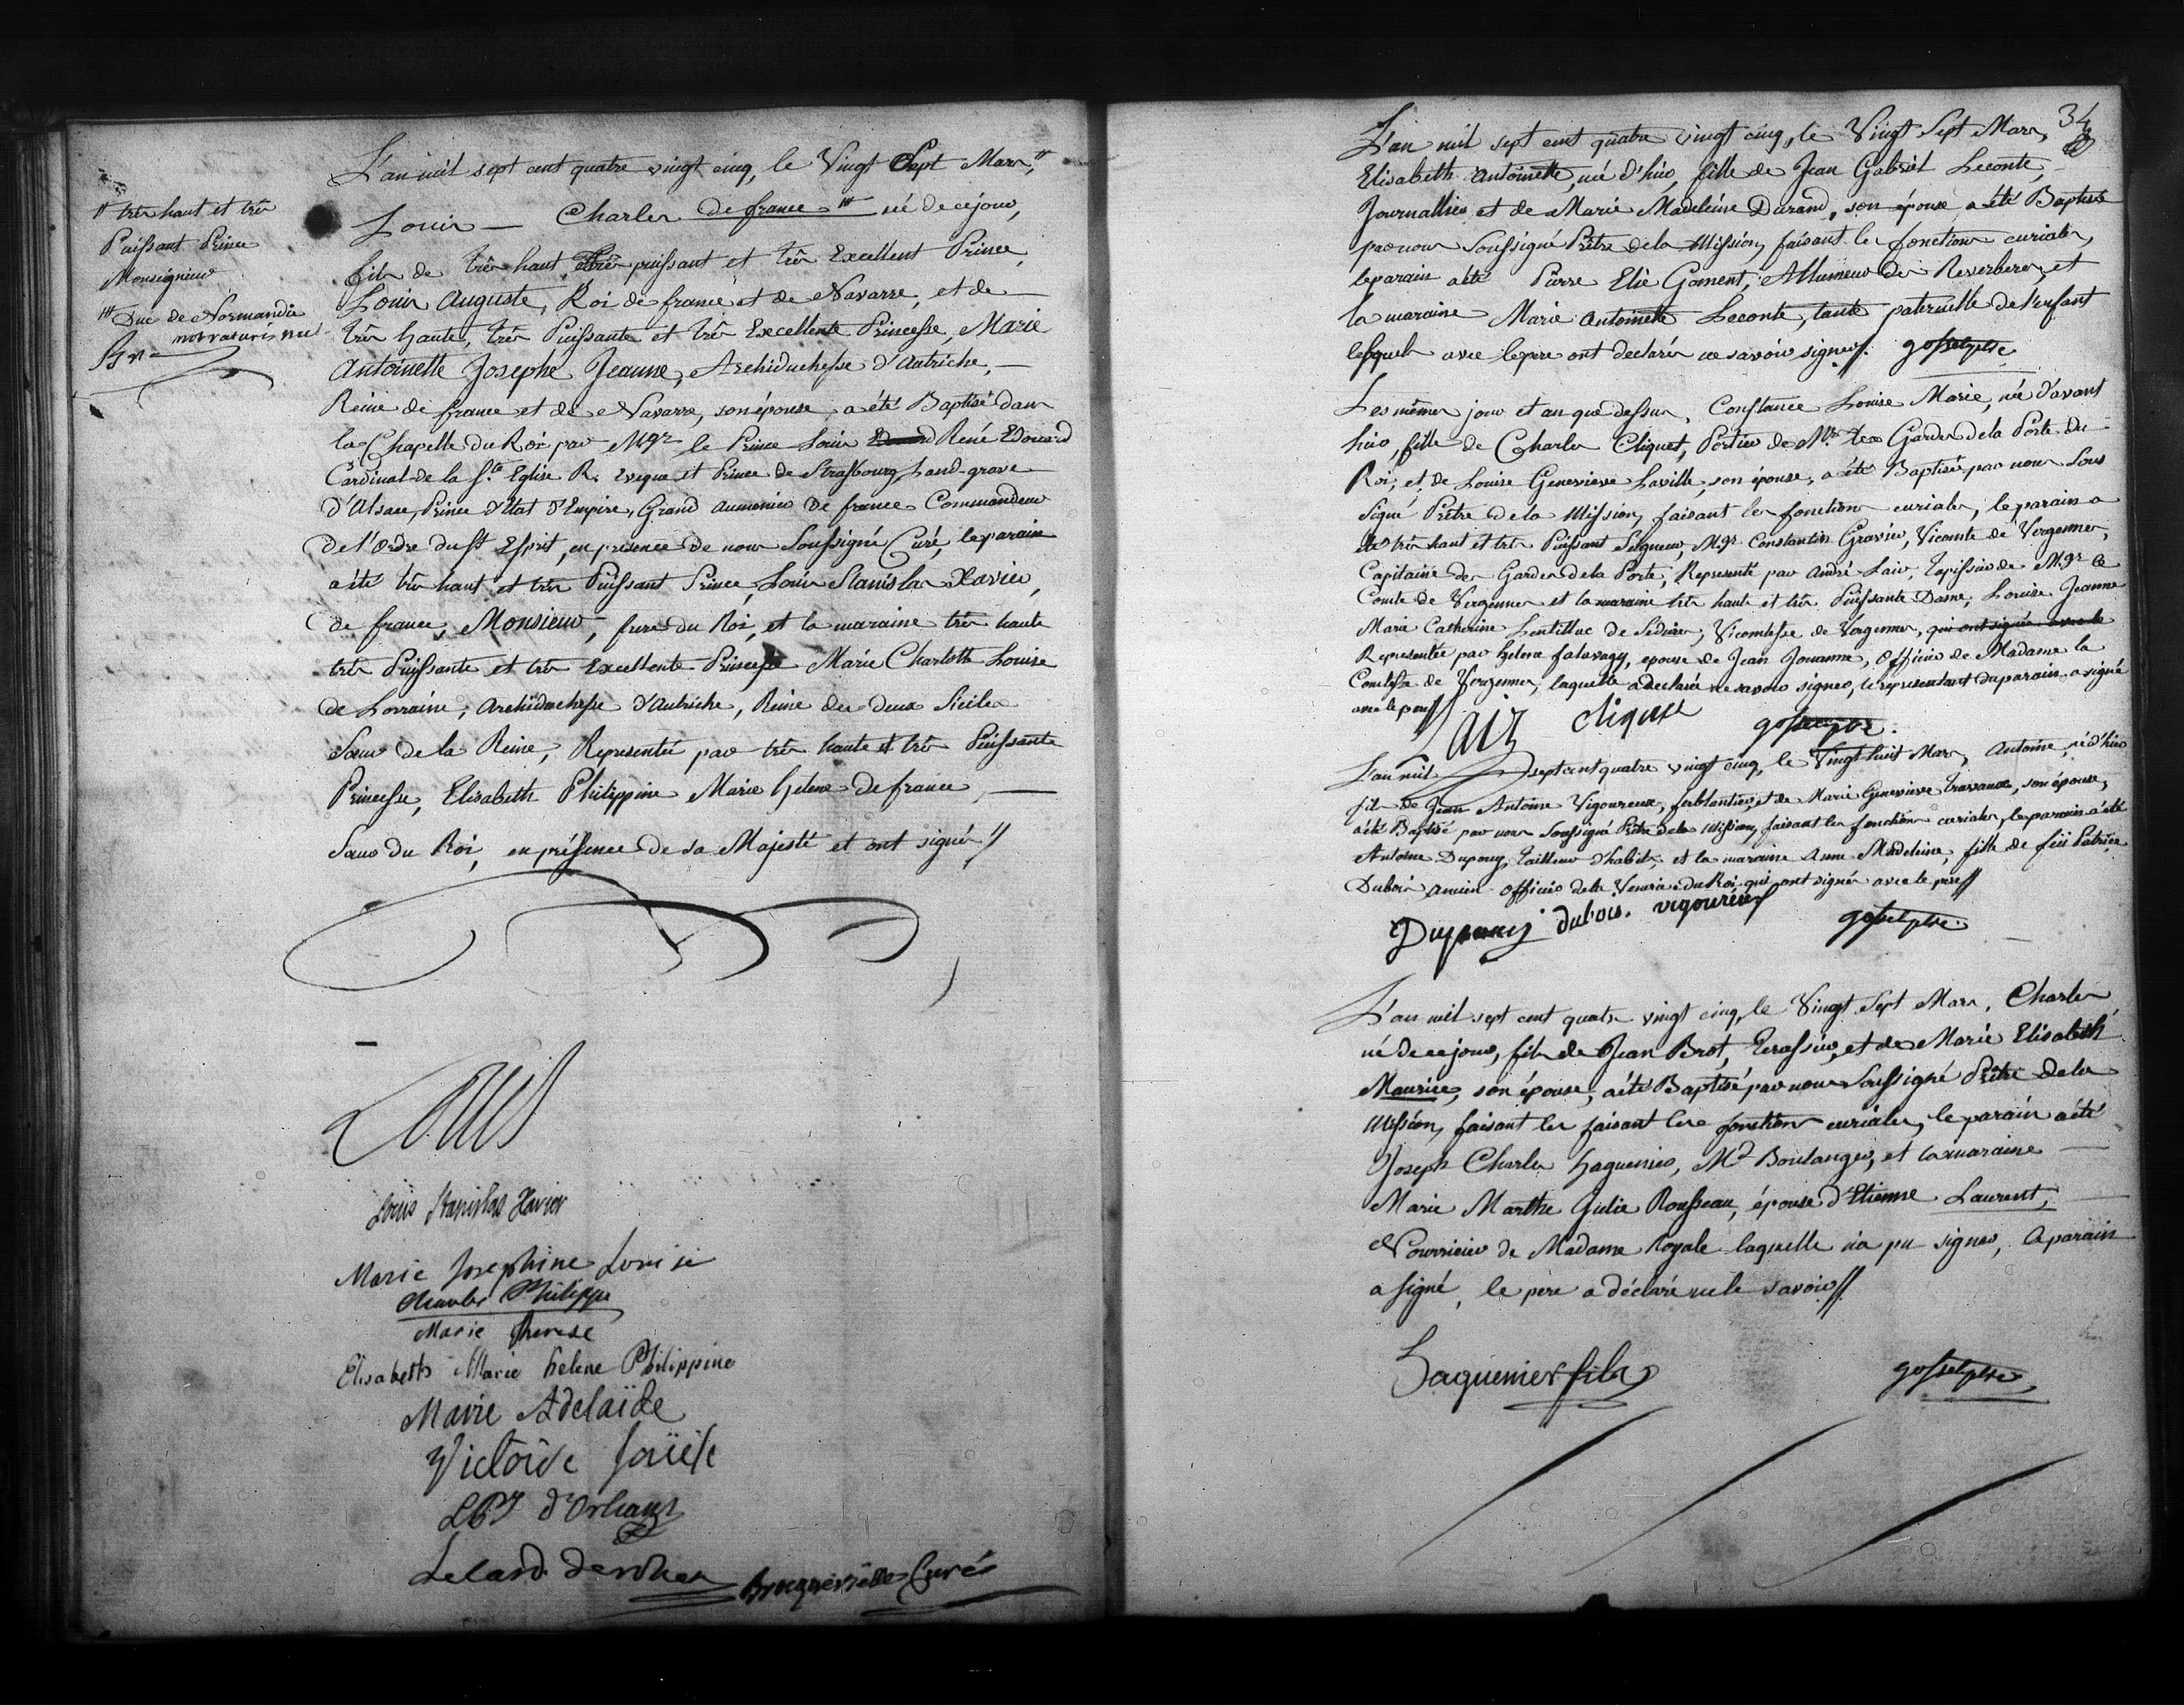 L'an mil sept cent quatre vingt cinq, le Vingt Sept Mars,"
" très haut et très
Puissant Prince
Monseigneur
"' Duc de Normandie
Louis — Charles de france "' né de ce jour,
fils de très haut, très puissant et très Excellent Prince,
Louis Auguste, Roi de france et de Navarre, et de
très haute, très Puissante et très Excellente Princesse, Marie
Antoinette Josephe Jeanne, Archiduchesse d'Autriche, —
Reine de france et de Navarre, son épouse, a été Baptisé dans
la Chapelle du Roi par Mgr le Prince Louis René Edouard
Cardinal de la Ste Eglise R. Eveque et Prince de Strasbourg, Land-grave
d'Alsace, Prince d'Etat d'Empire, Grand aumonier de france Commandeur
de l'Ordre du St Esprit, en presence de nous Soussigné Curé, le parain
a été très haut et très Puissant Prince, Louis Stanislas Xavier,
de france, Monsieur, frere du Roi, et la maraine très haute
très Puissante et très Excellente Princesse Marie Charlotte Louise
de Lorraine, Archiduchesse d'Autriche, Reine des deux Siciles
Sœur de la Reine, Representée par très haute et très Puissante
Princesse, Elisabeth Philippine Marie helene de france, —
Sœur du Roi, en présence de sa Majesté et ont signé //
Louis
Louis Stanislas Xavier
Marie Josephine Louise
Charles Philippe
Marie therese
Elisabeth Marie helene Philippine
Marie Adelaïde
Victoire Loüise
LPJ d'Orleans
Le Card. de rohan Brocqueville Curé
34
L'an mil sept cent quatre vingt cinq, le Vingt Sept Mars,
Elisabeth Antoinette, née d'hier, fille de Jean Gabriel Leconte,
Journallier et de Marie Madeleine Durand, son épouse a été Baptisée
par nous Soussigné Prêtre de la Mission, faisant les fonctions curiales,
le parain a été Pierre Elie Goment, Allumeur des Reverberes, et
la maraine Marie Antoinette Leconte, tante paternelle de l'enfant
lesquels avec le pere ont declarés ne savoir signer //. gossel ptre
Les mêmes jour et an que dessus, Constance Louise Marie, née d'avant
hier, fille de Charles Cliquet, Portier de Mrs les Gardes de la Porte du
Roi, et de Louise Genevieve Laville, son épouse, a été Baptisée par nous Sous
Signé Prêtre de la Mission, faisant les fonctions curiales, le parain a
été très haut et très Puissant Seigneur, Mgr Constantin Gravier, Vicomte de Vergennes,
Capitaine des Gardes de la Porte, Representé par André Lair, Tapissier de Mgr le
Comte de Vergennes et la maraine très haute et très Puissante Dame, Louise Jeanne
Marie Catherine Lentilhac de Sediere, Vicomtesse de Vergennes, qui ont signés avec le
Representée par helene falavagy, epouse de Jean Jouanne, Officier de Madame la
Comtesse de Vergennes, laquelle a declarée ne savoir signer, le representant du parain a signé
avec le pere //
Lair cliquet gossel ptre.
L'an mil sept cent quatre vingt cinq, le Vingt huit Mars, Antoine, né d'hier
fils de Jean Antoine Vigoureux, ferblantier, et de Marie Genevieve Travaux, son épouse,
a été Baptisé par nous Soussigné Prêtre de la Mission, faisant les fonctions curiales, le parain a été
Antoine Dupouy, Tailleur d'habits, et la maraine Anne Madeleine, fille de feu Patrice
Dubois ancien officier de la Venerie du Roi, qui ont signés avec le pere //
Dupouy dubois. vigoureux gossel ptre.
L'an mil sept cent quatre vingt cinq, le Vingt Sept Mars, Charles
né de ce jour, fils de Jean Brot, Terassier, et de Marie Elisabeth
Maurice, son épouse, a été Baptisé par nous Soussigné Prêtre de la
Mission, faisant les faisant les fonctions curiales, le parain a été
Joseph Charles haguenier, Md Boulanger, et la maraine —
Marie Marthe Julie Rousseau, épouse d'Etienne Laurent, —
Nourricier de Madame Royale laquelle n'a pu signer, le parain
a signé, le pere a déclaré ne le savoir //
haguenier fils gossel ptre